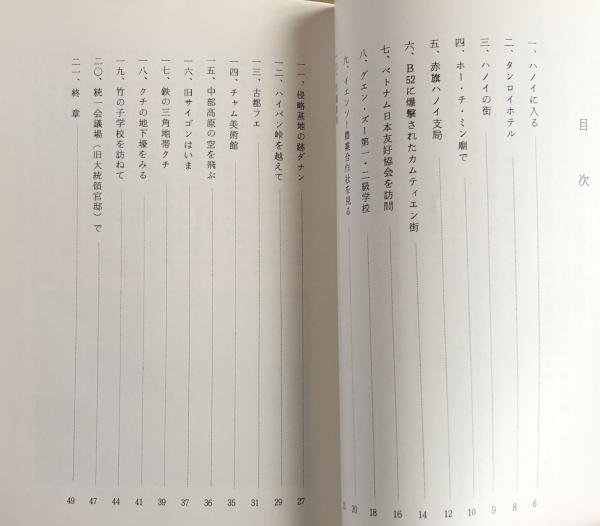 目次
一、ハノイに入る 6
二、タンロイホテル 8
三、ハノイの街 9
四、ホー・チ・ミン廟で 10
五、赤旗ハノイ支局 12
六、B52に爆撃されたカムティエン街 14
七、ベトナム日本友好協会を訪問 16
八、グエン・ズー第一・二級学校 18
九、イエンソー農業合作社を見る 20
一一、侵略基地の跡ダナン 27
一二、ハイバン峠を越えて 29
一三、古都フエ 31
一四、チャム美術館 35
一五、中部高原の空を飛ぶ 36
一六、旧サイゴンはいま 37
一七、鉄の三角地帯クチ 39
一八、クチの地下壕をみる 41
一九、竹の子学校を訪ねて 44
二〇、統一会議場（旧大統領官邸）で 47
二一、終章 49